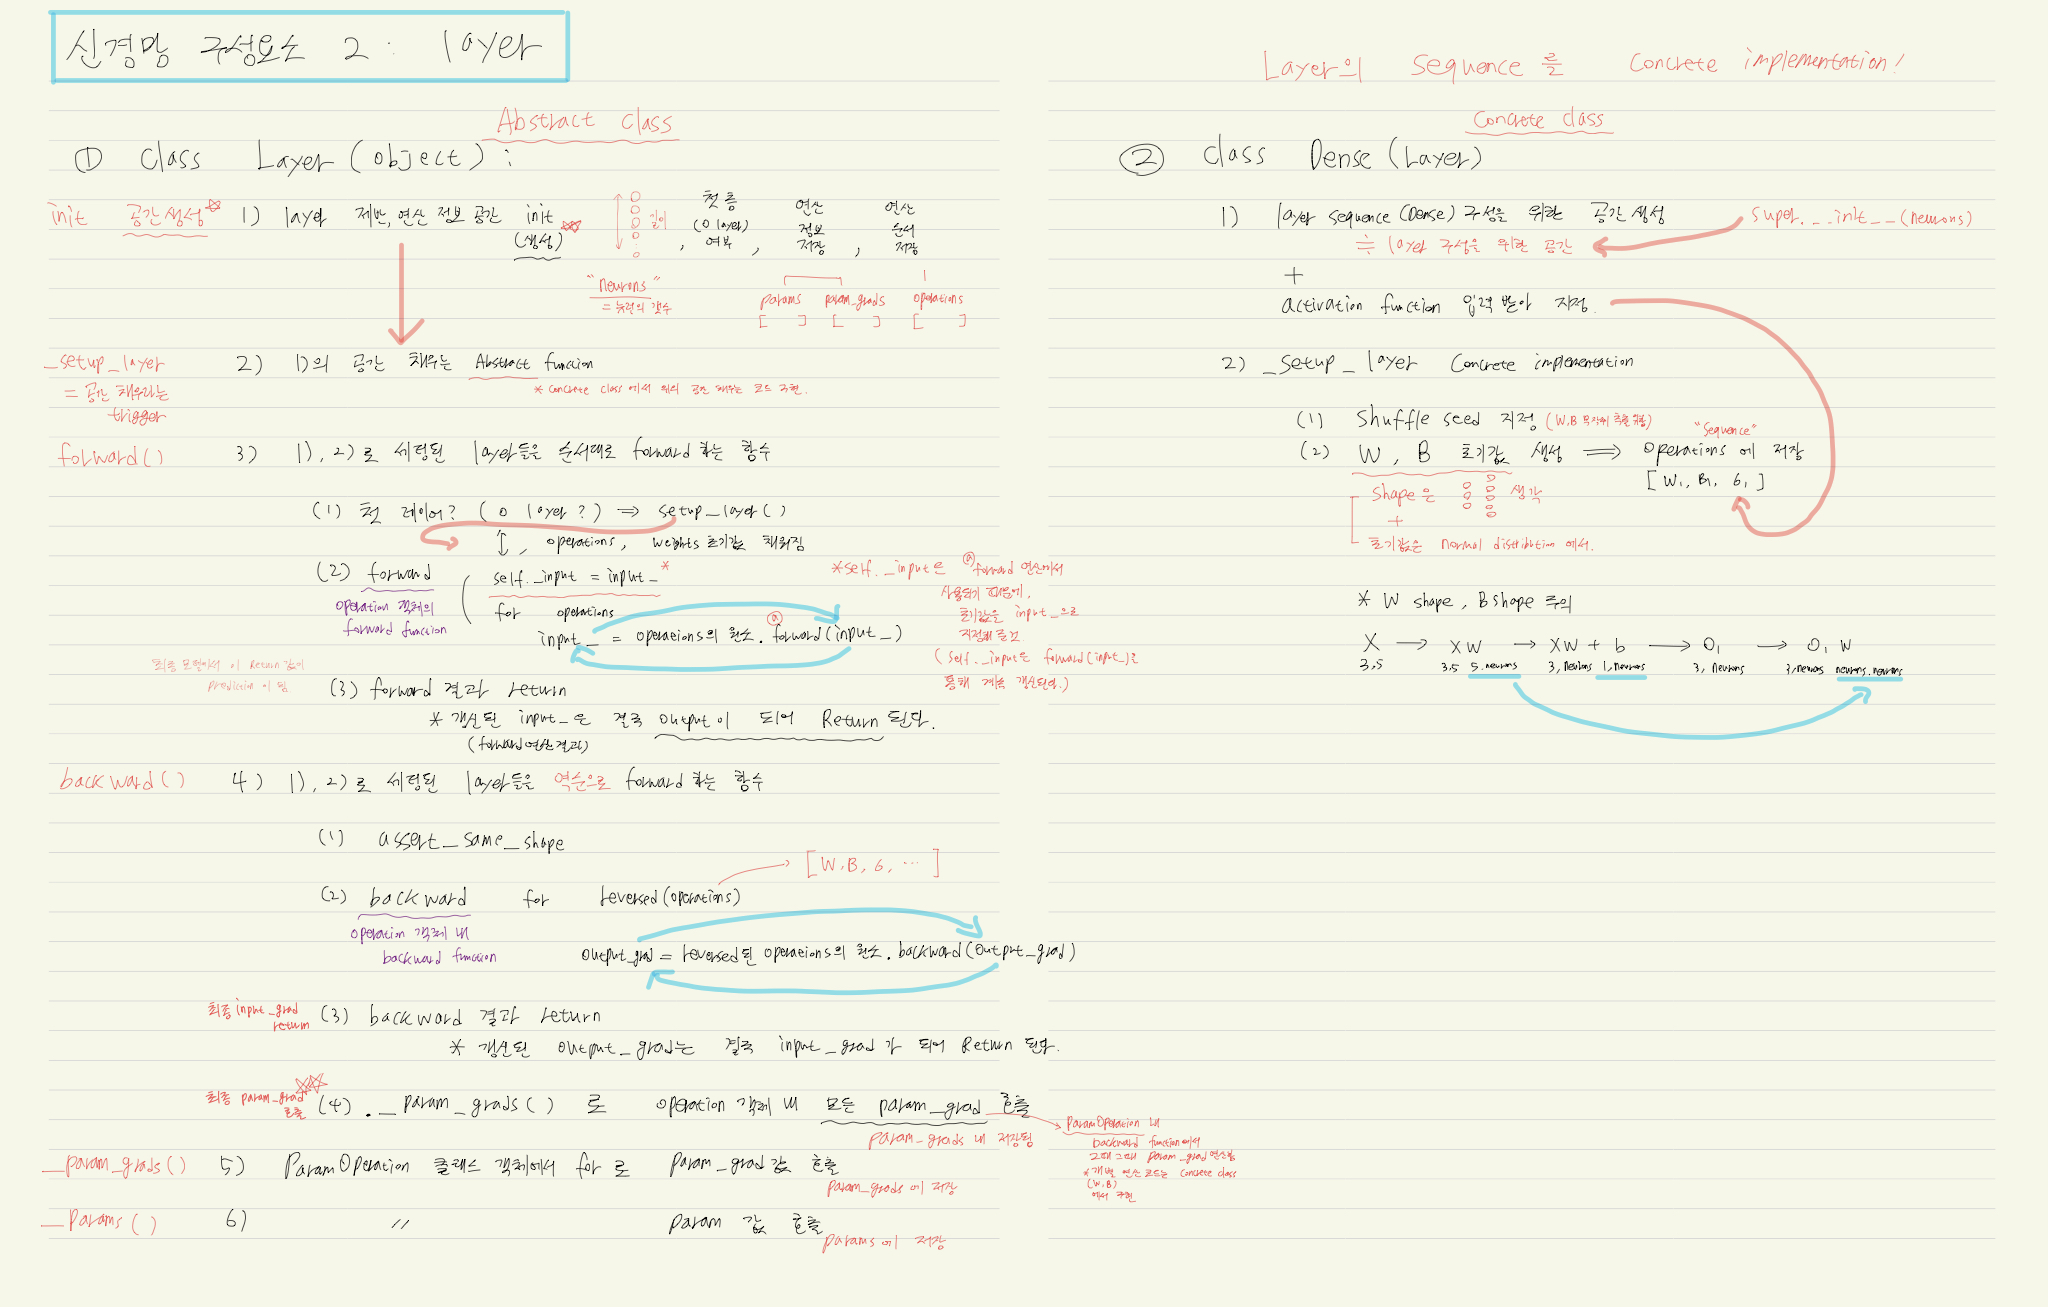 신경망 구성요소 2 : layer
Abstract class
① class Layer (object) :
init 공간생성
1) layer 제반, 연산 정보 공간 init
(생성)
길이
"neurons"
= 뉴런의 갯수
첫 층
(0 layer)
여부
,
연산
정보
저장
,
연산
순서
저장
params param_grads operations
[ ] [ ] [ ]
_setup_layer
= 공간 채우라는
trigger
2) 1)의 공간 채우는 Abstract function
* concrete class에서 위의 공간 채우는 코드 구현.
forward()
3) 1), 2)로 세팅된 layer들을 순서대로 forward 하는 함수
(1) 첫 레이어? (0 layer?) ⇒ setup_layer()
↕, operations, weights 초기값 채워짐
(2) forward
operation 객체의
forward function
self._input = input_ *
for operations
input_ = operations의 원소.forward(input_)
ⓐ
*self._input은 ⓐforward 연산에서
사용되기 때문에,
초기값을 input_으로
지정해
(self._input은 forward(input_)를
통해 계속 갱신된다.)
최종 모델에서 이 Return값이
prediction이 됨
(3) forward 결과 return
* 갱신된 input_은 결국 output이 되어 Return 된다.
(forward 연산 결과)
backward()
4) 1), 2)로 세팅된 layer들을 역순으로 forward 하는 함수
(1) assert_same_shape
(2) backward for reversed(operations)
[W, B, 6, ⋯ ]
operation 객체 내
backward function
output_grad = reversed된 operations의 원소.backward(output_grad)
최종 input_grad
return
(3) backward 결과 return
* 갱신된 output_grad는 결국 input_grad가 되어 Return 된다.
최종 param_grad
호출
(4) ._param_grads()로 operation 객체 내 모든 param_grad 호출
param_grads 내 저장됨
ParamOperation 내
backward function에서
그때 그때 param_grad 연산됨
*개별 연산 코드는 concrete class
(W, B)
에서 구현
_param_grads()
5) ParamOperation 클래스 객체에서 for로 param_grad값 호출
param_grads에 저장
_params()
6) 〃 param 값 호출
params에 저장
Layer의 sequence를 concrete implementation!
concrete class
② class Dense (Layer)
1) layer sequence (Dense) 구성을 위한 공간 생성
super.__init__(neurons)
≒ layer 구성을 위한 공간
+
activation function 입력 받아 지정.
2) _setup_layer concrete implementation
(1) shuffle seed 지정 (W, B 무작위 추출 위함)
"sequence"
(2) W, B 초기값 생성 ⇒ operations에 저장
[W₁, B₁, 6₁]
shape은 생각
+
초기값은 normal distribution에서.
* W shape, B shape 주의
X → XW → XW + b → O₁ → O₁ W
3,5 3,5 5,neurons 3,neurons 1,neurons 3,neurons 3,neurons neurons,neurons